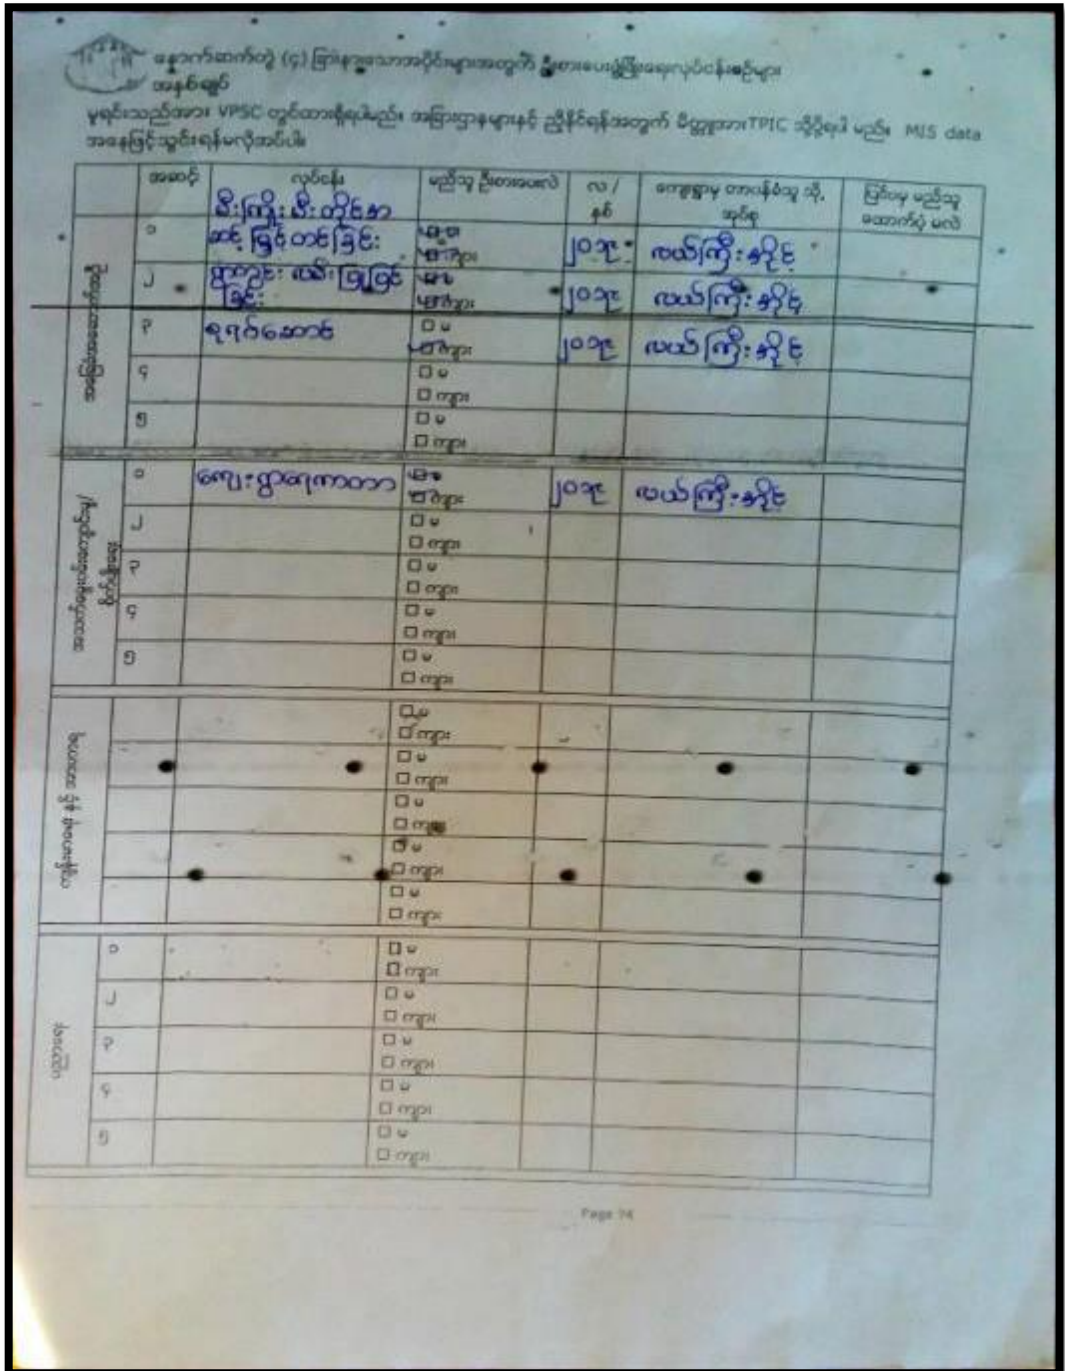 နောက်ဆက်တွဲ (၄) ခြားနားသောအပိုင်းများအတွက် ဦးစားပေးဖွံ့ဖြိုးရေးလုပ်ငန်းစဉ်များ
အနှစ်ချုပ်
မူရင်းသည်အား VPSC တွင်ထားရှိရပါမည်။ အခြားဌာနများနှင့် ညှိနှိုင်ရန်အတွက် မိတ္တူအားTPIC သို့ပို့ရပါ မည်။ MIS data
အနေဖြင့်သွင်းရန်မလိုအပ်ပါ။
အဆင့် လုပ်ငန်း မည်သူ ဦးစားပေးလဲ လ / နှစ် ကျေးရွာမှ တာဝန်ခံသူ သို့, အုပ်စု ပြင်ပမှ မည်သူ ထောက်ပံ့ မလဲ
မီးကြိုး မီးတိုင်အ
၁ ဆင့် မြှင့်တင်ခြင်း မ ကျား ၂၀၁၉ လယ်ကြီးအိုင်
၂ ရွာတွင်း လမ်းပြုပြင် ခြင်း မ ကျား ၂၀၁၉ လယ်ကြီးအိုင်
၃ ရရပ်ဆောင် မ ကျား ၂၀၁၉ လယ်ကြီးအိုင်
၄ မ ကျား
၅ မ ကျား
၁ ကျေးရွာရေကာတာ မ ကျား ၂၀၁၉ လယ်ကြီးအိုင်
၂ မ ကျား
၃ မ ကျား
၄ မ ကျား
၅ မ ကျား
မ ကျား
မ ကျား
မ ကျား
မ ကျား
မ ကျား
၁ မ ကျား
၂ မ ကျား
၃ မ ကျား
၄ မ ကျား
၅ မ ကျား
Page 74